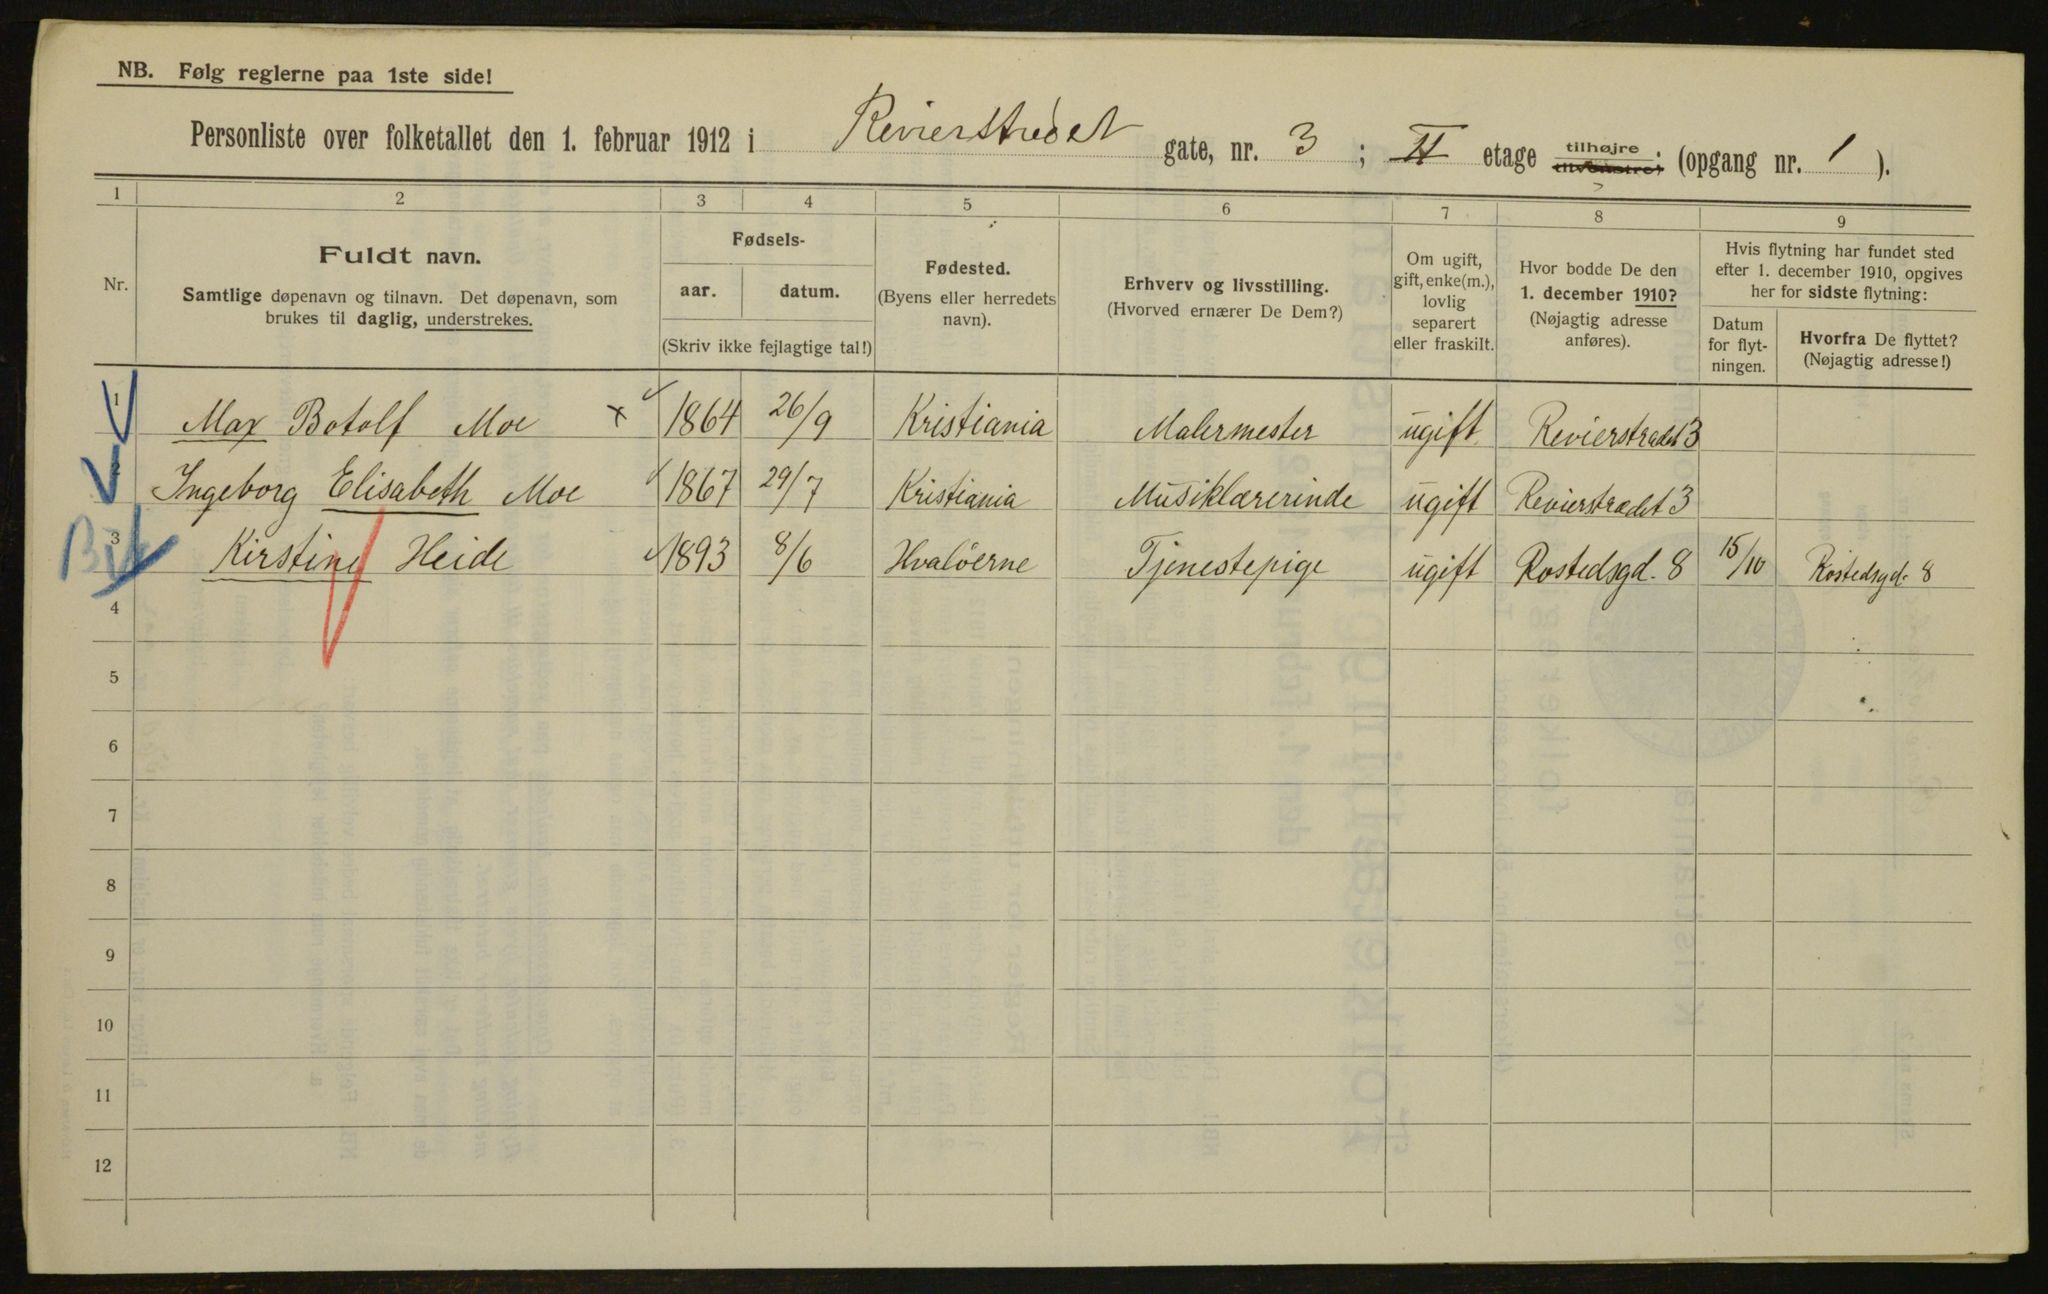 NB. Følg reglerne paa 1ste side!
Personliste over folketallet den 1. februar 1912 i Revierstrædet gate, nr. 3 ; II etage tilhøjre tilvenstre; (opgang nr. 1 ).
1 2 3 4 5 6 7 8 9
Nr.
Fuldt navn.
Samtlige døpenavn og tilnavn. Det døpenavn, som
brukes til daglig, understrekes.
Fødsels-
aar. datum.
(Skriv ikke fejlagtige tal!)
Fødested.
(Byens eller herredets
navn).
Erhverv og livsstilling.
(Hvorved ernærer De Dem?)
Om ugift,
gift, enke(m.),
lovlig
separert
eller fraskilt.
Hvor bodde De den
1. december 1910?
(Nøjagtig adresse
anføres).
Hvis flytning har fundet sted
efter 1. december 1910, opgives
her for sidste flytning:
Datum
for flyt-
ningen.
Hvorfra De flyttet?
(Nøjagtig adresse!)
1 Max Botolf Moe x 1864 26/9 Kristiania Malermester ugift Revierstradet 3
2 Ingeborg Elisabeth Moe 1867 29/7 Kristiania Musiklærerinde ugift Revierstrædet 3
3 Kirstine Heide 1893 8/6 Hvaløerne Tjenestepige ugift Rostedsgd. 8 15/10 Rostedsgd. 8
4
5
6
7
8
9
10
11
12